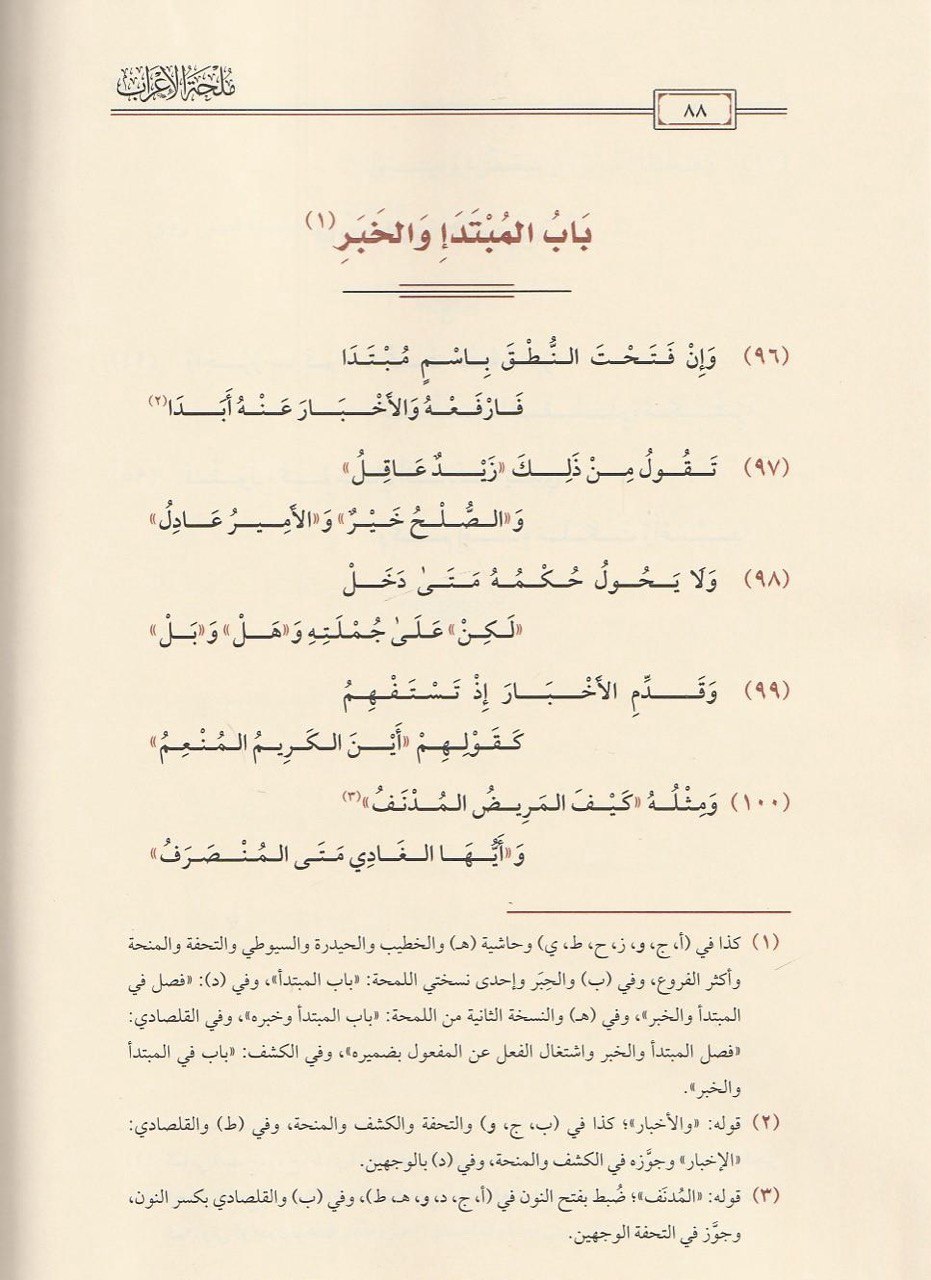 مُلْحَةُ الإِعْرَابِ
٨٨
بَابُ المُبْتَدَإِ وَالخَبَرِ(١)
(٩٦) وَإِنْ فَتَحْتَ النُّطْقَ بِاسْمٍ مُبْتَدَا
فَارْفَعْهُ وَالأَخْبَارَ عَنْهُ أَبَدَا(٢)
(٩٧) تَقُولُ مِنْ ذَلِكَ «زَيْدٌ عَاقِلُ»
وَ«الصُّلْحُ خَيْرٌ» وَ«الأَمِيرُ عَادِلُ»
(٩٨) وَلَا يَحُولُ حُكْمُهُ مَتَىٰ دَخَلْ
«لَكِنْ» عَلَىٰ جُمْلَتِهِ وَ«هَلْ» وَ«بَلْ»
(٩٩) وَقَدِّمِ الأَخْبَارَ إِذْ تَسْتَفْهِمُ
كَقَوْلِهِمْ «أَيْنَ الكَرِيمُ المُنْعِمُ»
(١٠٠) وَمِثْلُهُ «كَيْفَ المَرِيضُ المُدْنَفُ»(٣)
وَ«أَيُّهَا الغَادِي مَتَى المُنْصَرَفُ»
(١) كذا في (أ، ج، و، ز، ح، ط، ي) وحاشية (هـ) والخطيب والحيدرة والسيوطي والتحفة والمنحة
وأكثر الفروع، وفي (ب) والحِبَر وإحدى نسختي اللمحة: «باب المبتدأ»، وفي (د): «فصل في
المبتدأ والخبر»، وفي (هـ) والنسخة الثانية من اللمحة: «باب المبتدأ وخبره»، وفي القلصادي:
«فصل المبتدأ والخبر واشتغال الفعل عن المفعول بضميره»، وفي الكشف: «باب في المبتدأ
والخبر».
(٢) قوله: «والأخبار»؛ كذا في (ب، ج، و) والتحفة والكشف والمنحة، وفي (ط) والقلصادي:
«الإخبار» وجوَّزه في الكشف والمنحة، وفي (د) بالوجهين.
(٣) قوله: «المُدنَف»؛ ضُبط بفتح النون في (أ، ج، د، و، هـ، ط)، وفي (ب) والقلصادي بكسر النون،
وجوَّز في التحفة الوجهين.